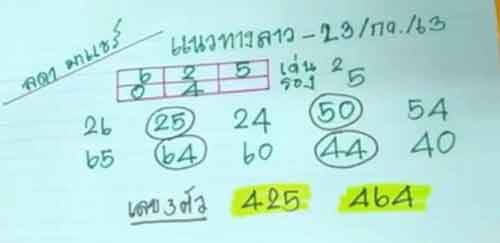 ลดา มาแชร์
แนวทางลาว - 23/กค./63
6 2 5 เด่น 2
0 4 รอง 5
26 25 24 50 54
65 64 60 44 40
เลข 3 ตัว 425 464